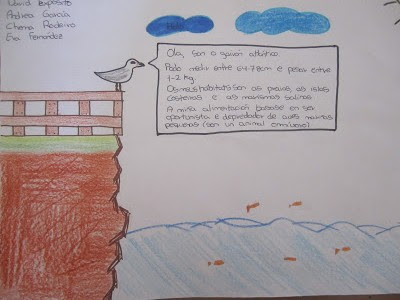 David Expósito
Andrea García
Chema Rodeiro
Eva Fernández
Ola, son o gaivón atlántico.
Podo medir entre 64-78cm e pesar entre
1-2 kg.
Os meus hábitats son as praias, as illas
costeiras e as marismas salinas
A miña alimentación basase en ser
oportunista e depredador de aves mariñas
pequenas (son un animal omnívoro)